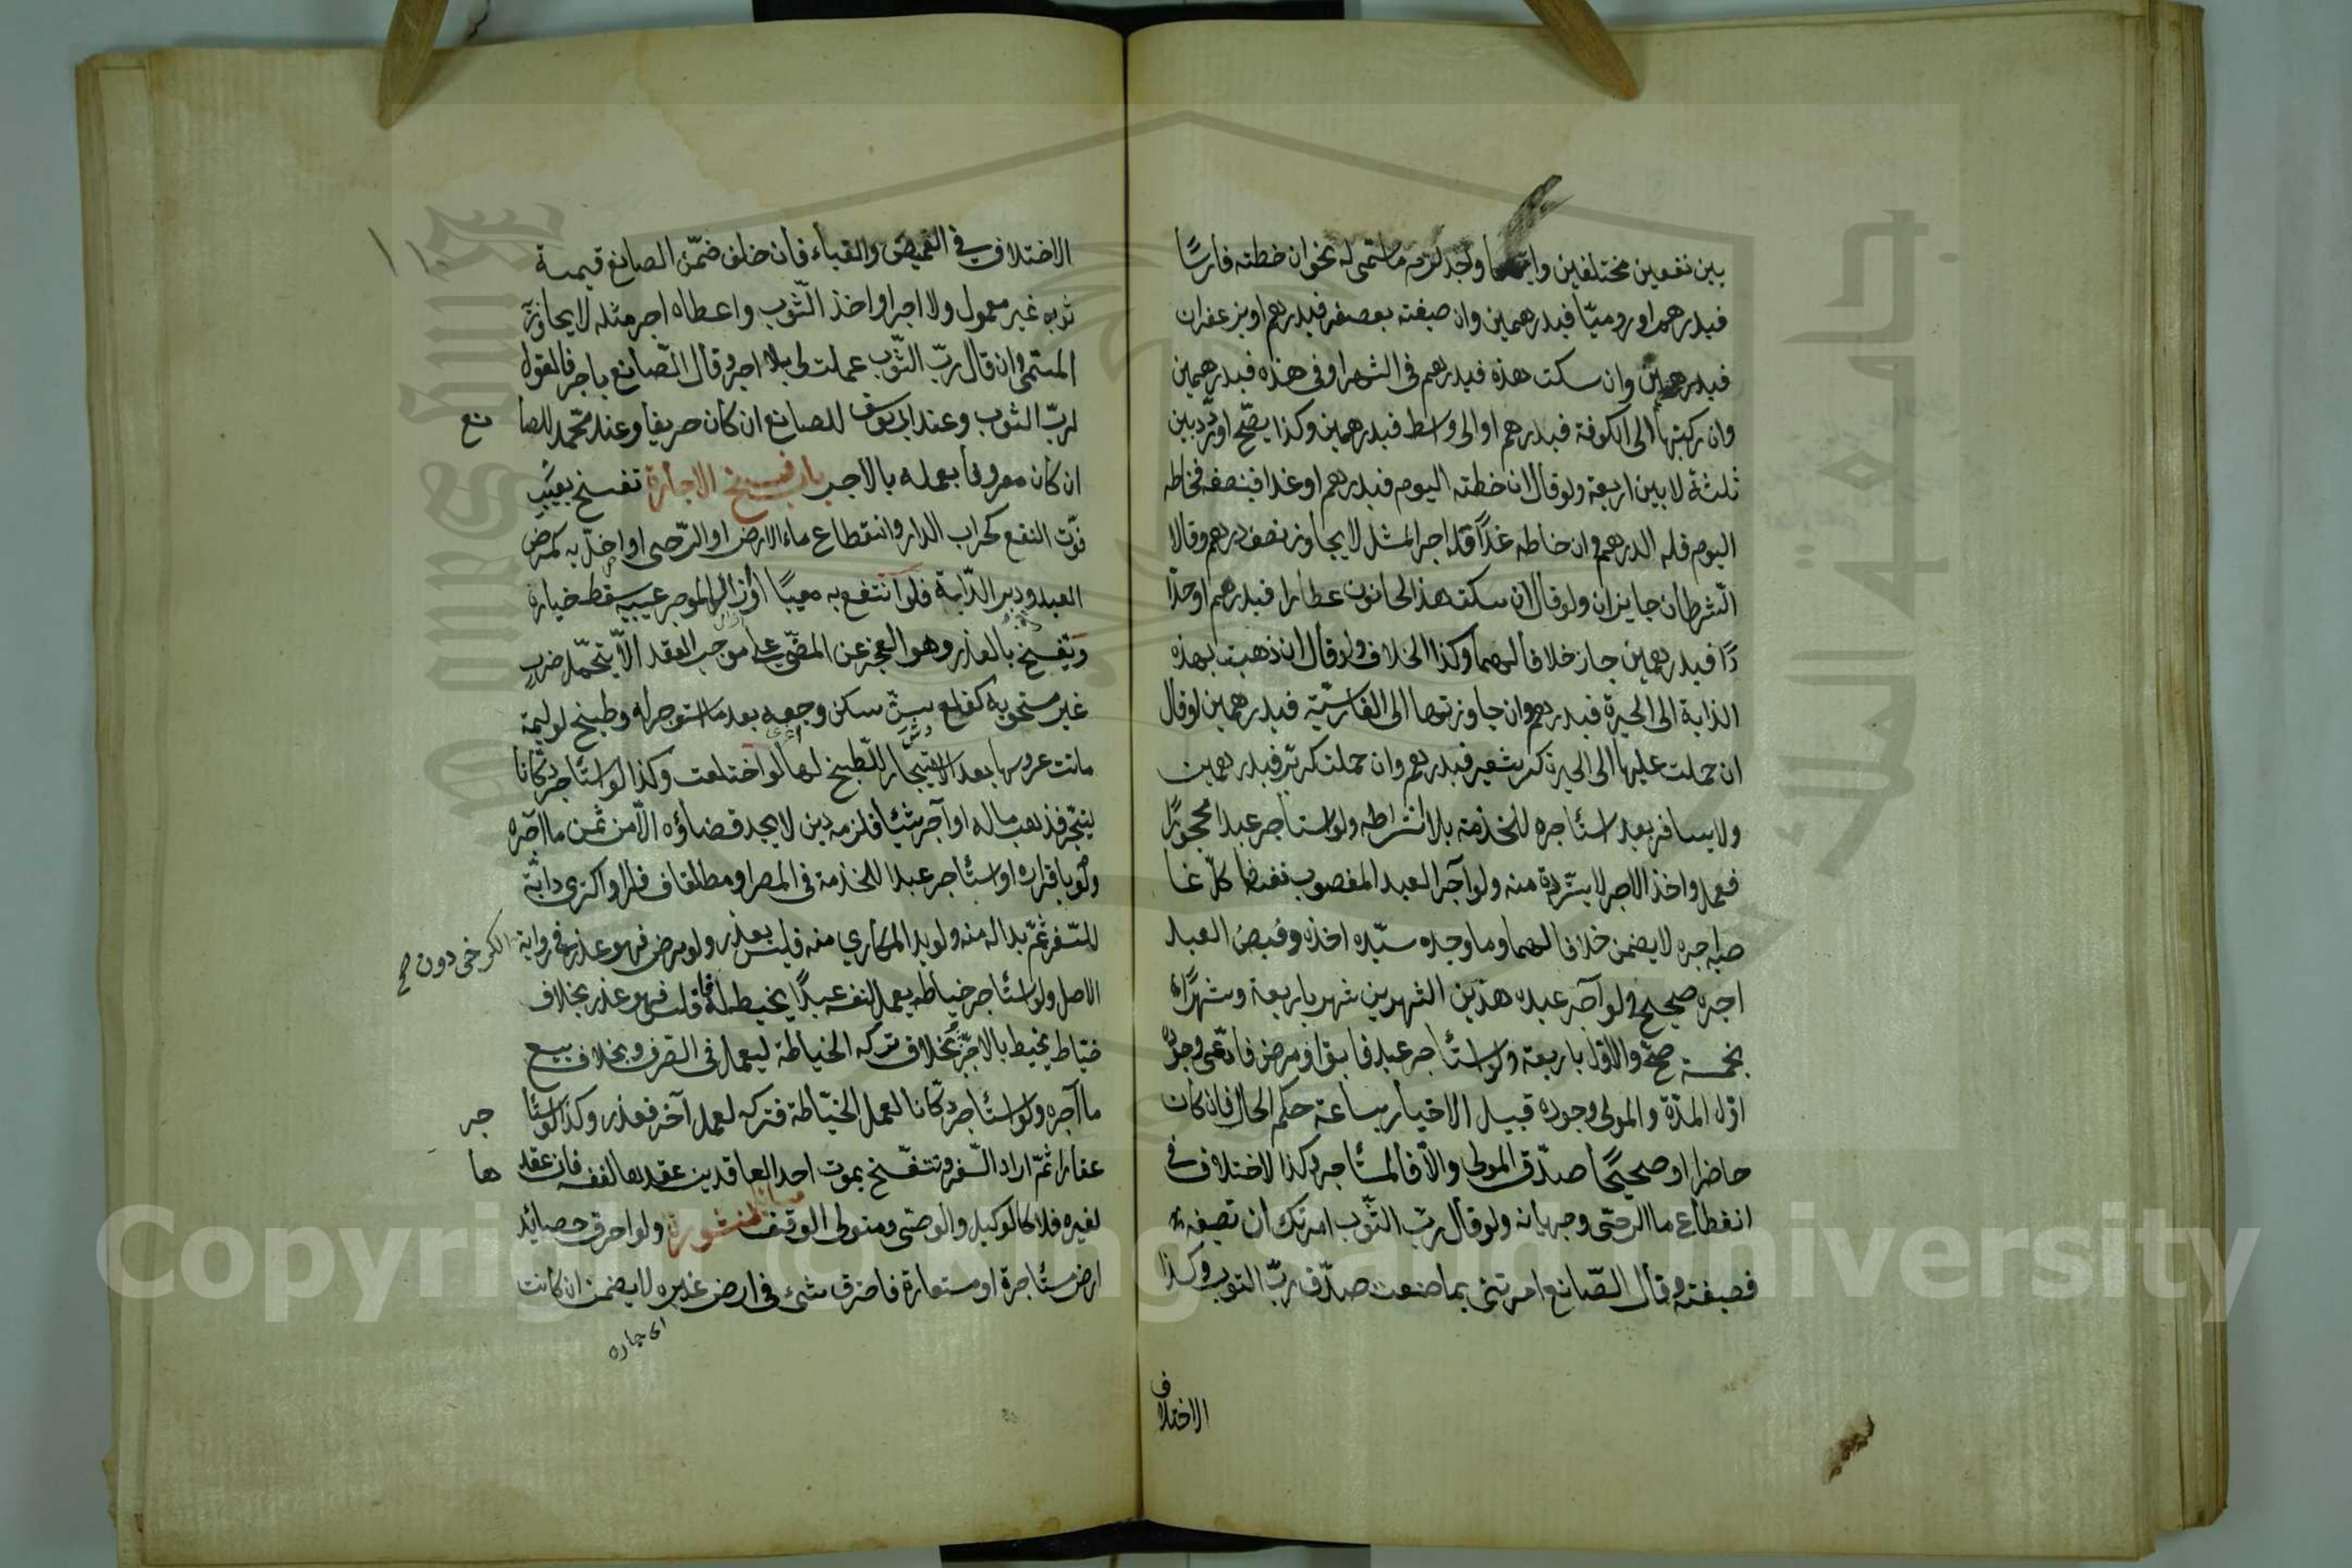 بين نفعين مختلفين وايهما وجد لزمه ما سمى له نحو ان خطته فارسيًا
فبدرهم او روميّا فبدرهمين وان صبغته بعصفر فبدرهم او بزعفران
فبدرهمين وان سكنت هذه فبدرهم فى الشهر او فى هذه فبدرهمين
وان ركبتها الى الكوفة فبدرهم او الى واسط فبدرهمين وكذا يصّح لو ردّد بين
ثلثة لا بين اربعة ولو قال ان خطته اليوم فبدرهم او غدا فبنصفه فخاطه
اليوم فله الدرهم وان خاطه غدًا فله اجر المثل لا يجاوز نصف درهم وقالا
الشرطان جايزان ولو قال ان سكنت هذا الحانوت عطارا فبدرهم او حدّا
دًا فبدرهمين جاز خلافا لهما وكذا الخلاف ولو قال ان ذهبت بهذه
الدابة الى الحيرة فبدرهم وان جاوزتها الى القادسيّة فبدرهمين او قال
ان حملت عليها الى الحيرة كر شعير فبدرهم وان حملت كر بّر فبدرهمين
ولا يسافر بعبد استأجره للخدمة بلا اشتراطه ولو استأجر عبدا محجورًا
فعمل واخذ الاجر لا يستّرده منه ولو آجر العبد المغصوب نفسه فاكل غا
صبه اجره لا يضمن خلافا لهما وما وجده سيّده اخذه وقبض العبد
اجره صحيح ولو آجر عبده هذين الشهرين شهر باربعة وشهرًا
بخمسة صحّ والاوّل باربعة ولو استأجر عبدا فابق او مرض فادّعى وجوده
اوّل المدّة والمولى وجوده قبيل الاخبار بساعة حكم الحال فان كان
حاضرا او صحيحًا صدّق المولى والّا فالمستأجر وكذا الاختلاف فى
انقطاع ماء الرحى وجريانه ولو قال ربّ الثّوب امرتك ان تصبغه
فصبغته وقال الصّانع امرتنى بما صنعت صدّق ربّ الثوب وكذا
الاختلاف
الاختلاف فى القميص والقباء فان حلف ضمّن الصانع قيمة
ثوبه غير معمول ولا اجر او اخذ الثّوب واعطاه اجر مثله لا يجاوز به
المسمّى وان قال ربّ الثّوب عملت لى بلا اجر وقال الصّانع باجر فالقول
لربّ الثوب وعند ابى يوسف للصانع ان كان حريفا وعند محمّد للصا نع
ان كان معروفا بعمله بالاجر باب فسخ الاجارة تفسخ بعيب
فوّت النفع كخراب الدار وانقطاع ماء الارض او الرّحى او اخلّ به كمرض
العبد ودبر الدّابة فلو انتفع به معيبًا او زال الموجر عيبه سقط خياره
وتفسخ بالعذر وهو العجز عن المضّى على موجب العقد الّا بتحمّل ضرر
غير مستحق به كقلع سنّ سكن وجعه بعد ما استوجر له وطبخ لوليمة
ماتت عروسها بعد الاستيجار للّطبخ لها او اختلعت وكذا لو استأجر دكّانا
ليتّجر فذهب ماله او آجر شيئا فلزمه دين لا يجد قضاؤه الّا من ثمن ما آجره
ولو باقراره او استأجر عبدا للخدمة فى المصر او مطلقا فسافر او اكترى دابّة
للسّفر ثمّ بدا له منه ولو بدا المكارى منه فليس بعذر ولو مرض فهو عذر فى رواية الكرخى دون صح
الاصل ولو استأجر خياط يعمل لنفسه عبدًا يخيط له فافلس فهو عذر بخلاف
خيّاط يخيط بالاجر وبخلاف تركه الخياطة ليعمل فى الصّرف وبخلاف بيع
ما آجره ولو استأجر دكّانا لعمل الخيّاطة فتركه لعمل آخر فعذر وكذا لو استأ جر
عقارا ثمّ اراد السّفر وتنفسّخ بموت احد العاقدين عقدها لنفسه فان عقد ها
لغيره فلا كالوكيل والوصّى ومتولى الوقف مسائل منثورة ولو احرق حصائد
ارض مستأجرة او مستعارة فاحترق شىء فى ارض غيره لا يضمن ان كانت
اى جاره